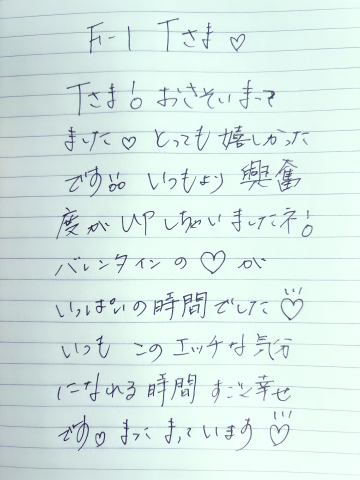 F-1 Tさま♡
Tさま！おきそいまって
ました♡ とっても嬉しかった
です!! いつもより 興奮
度が UP しちゃいましたネ！
バレンタインの ♡ が
いっぱいの時間でした♡
いつも このエッチな気分
になれる時間 すごく幸せ
です♡ まっています♡